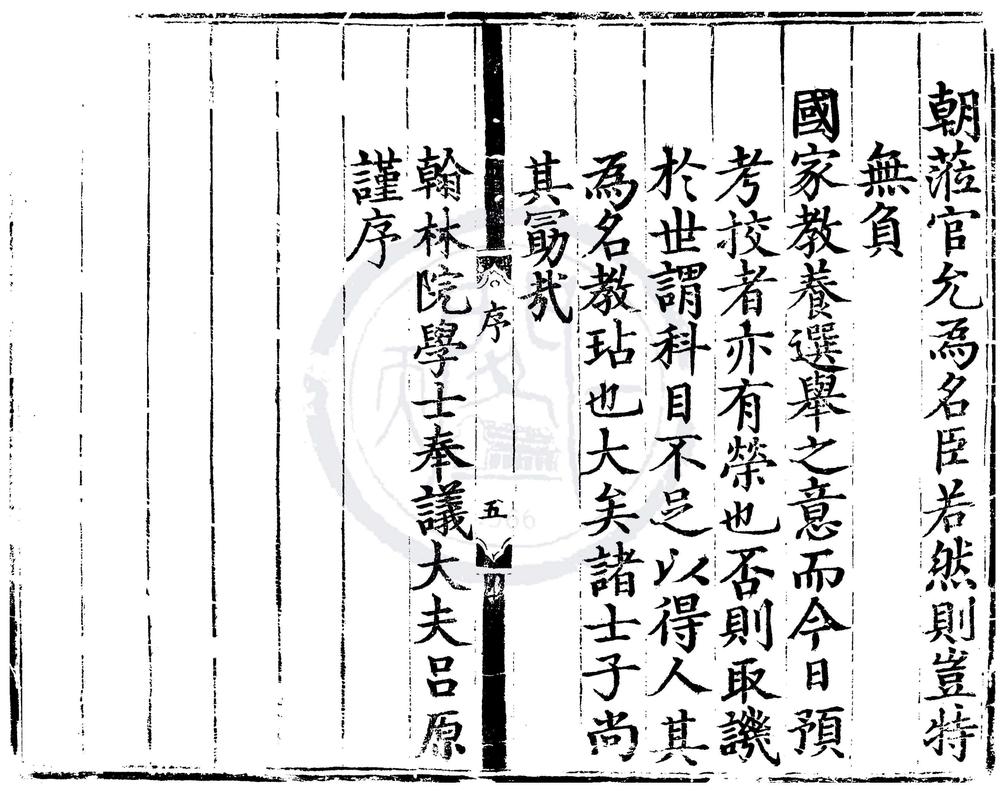 朝蒞官允為名臣若然則豈特
無負
國家教養選舉之意而今日預
考挍者亦有榮也否則取譏
於世謂科目不足以得人其
為名教玷也大矣諸士子尚
其勗哉
序
五
翰林院學士奉議大夫呂原
謹序